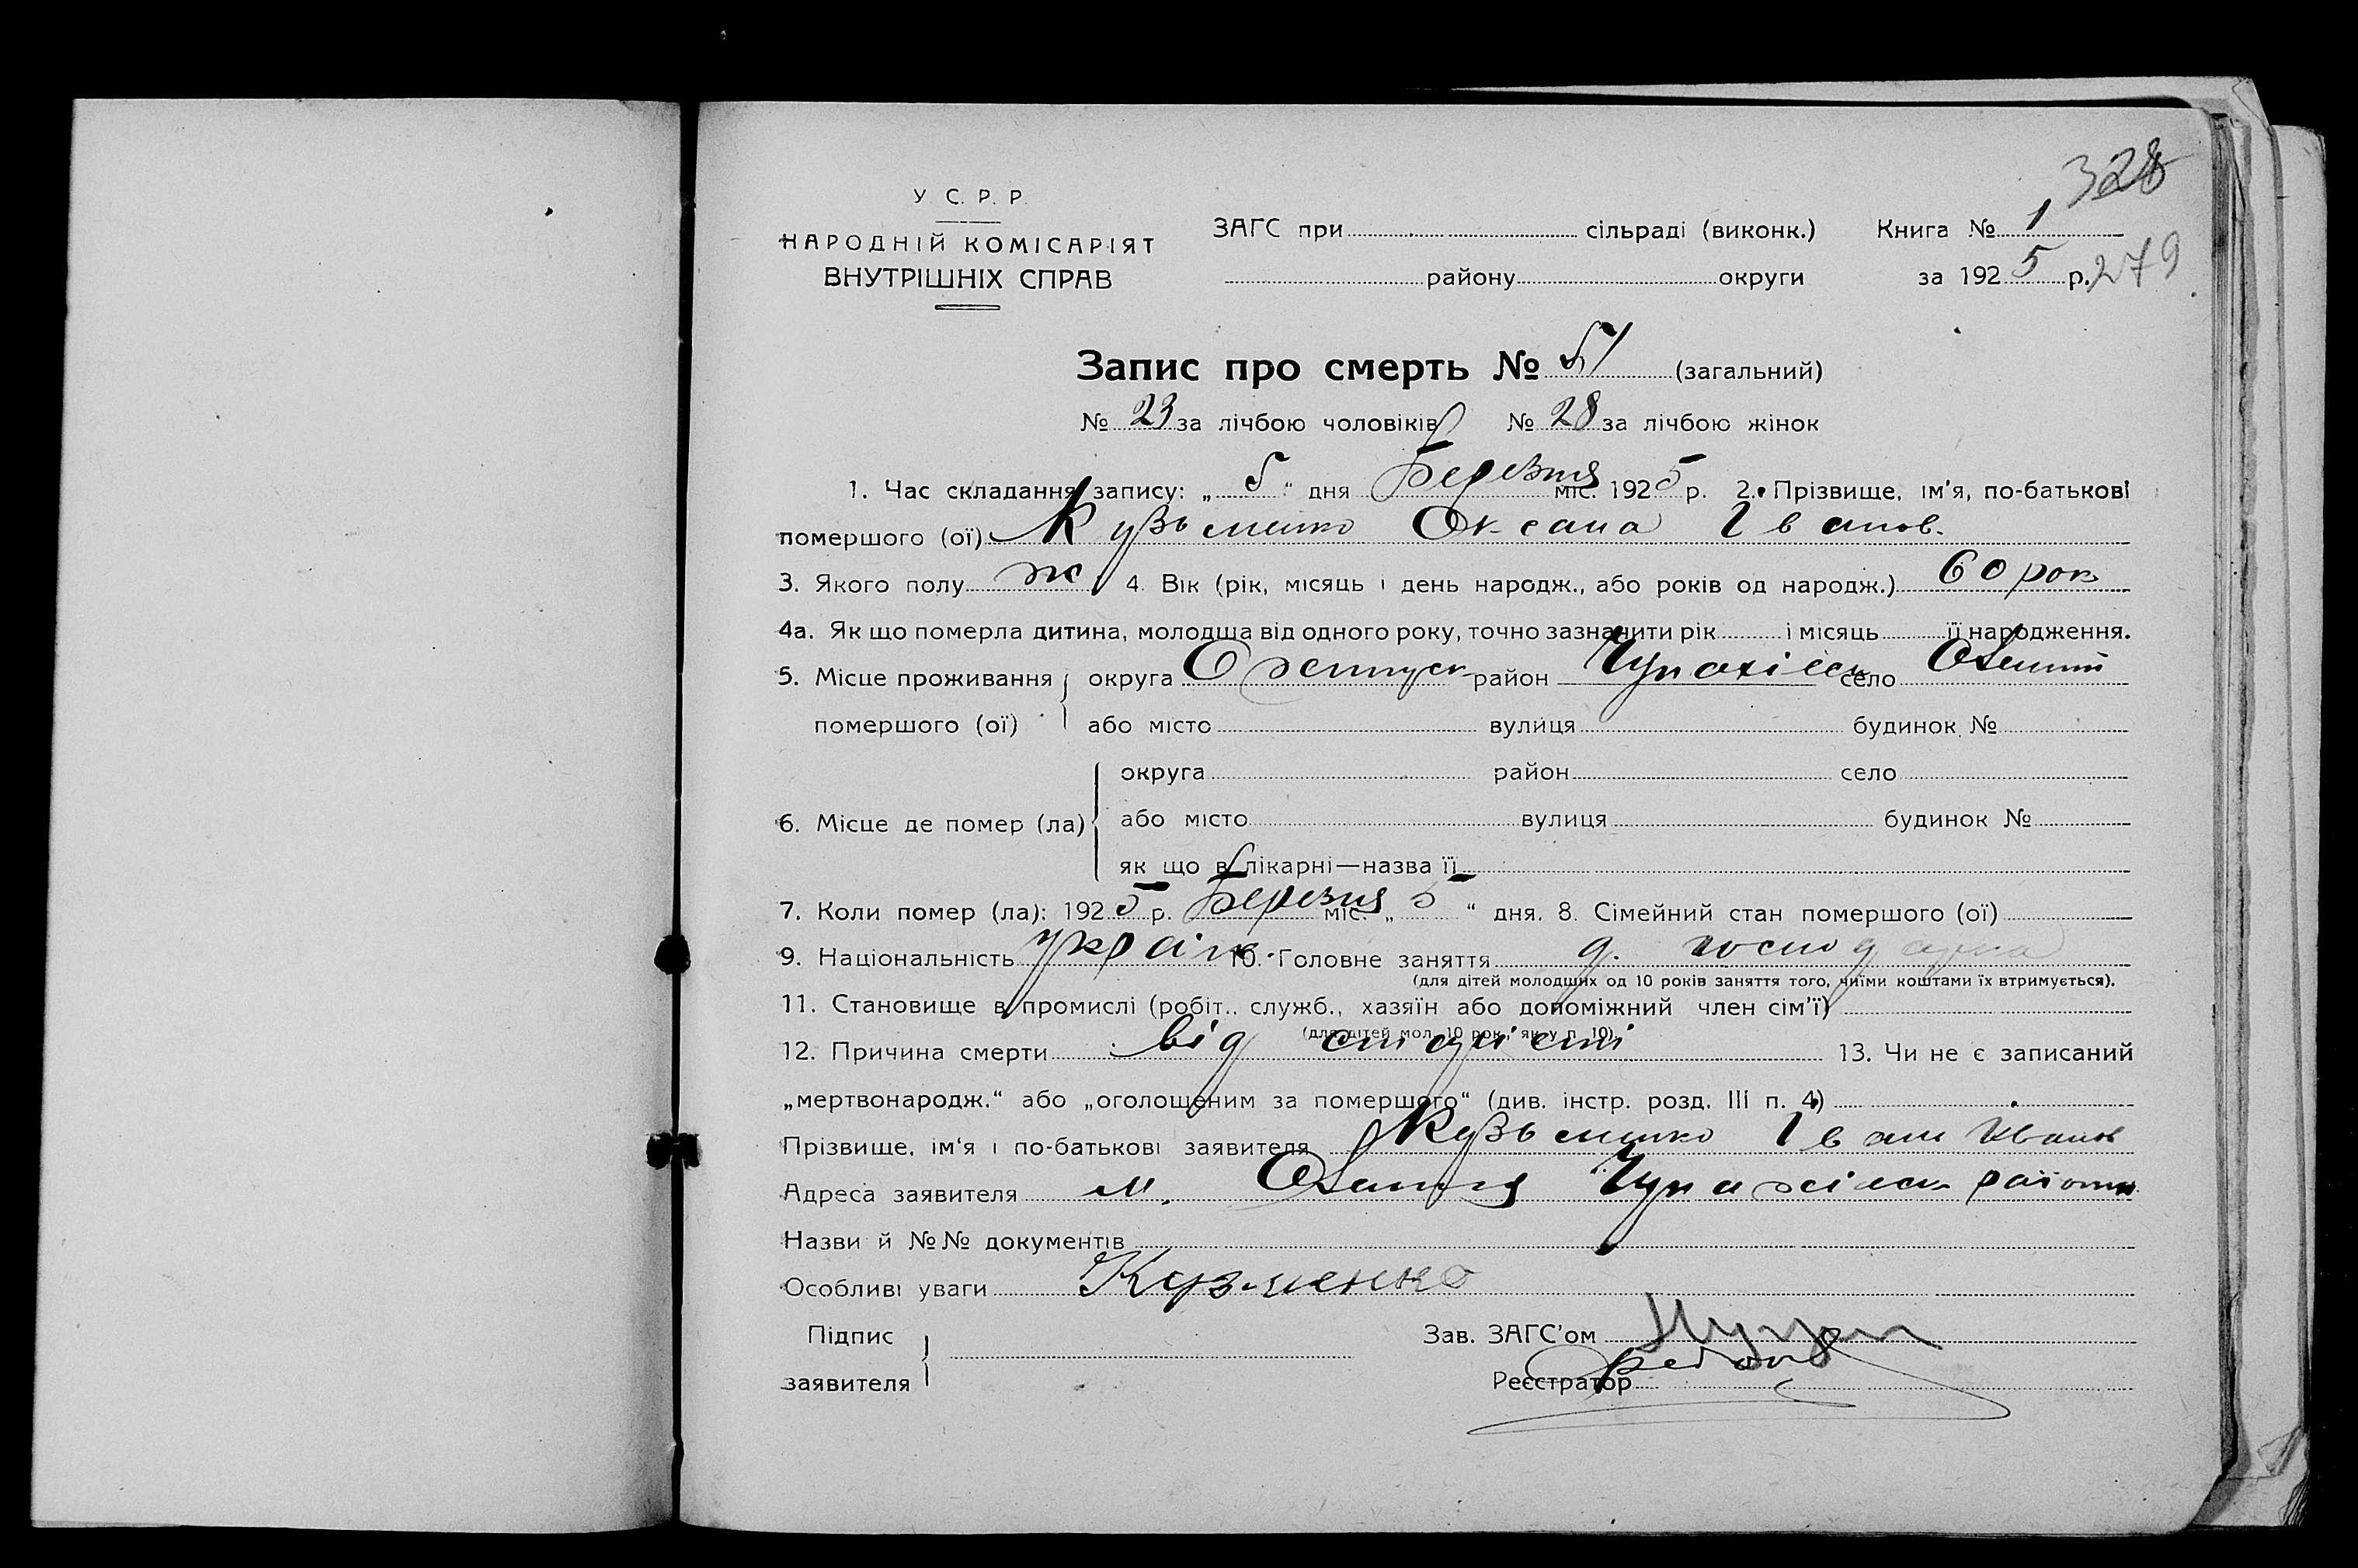 328
У С. Р. Р.
НАРОДНІЙ КОМІСАРІЯТ
ВНУТРІШНІХ СПРАВ
ЗАГС при сільраді (виконк.) Книга № 1
району округи за 1925 р. 279
Запис про смерть № 51 (загальний)
№ 23 за лічбою чоловіків № 28 за лічбою жінок
1. Час складання запису: „ 5 “ дня Березня міс. 1925 р. 2. Прізвище, ім'я, по-батькові
помершого (ої) Кузьменко Оксана Іванов.
3. Якого полу ж 4. Вік (рік, місяць і день народж., або років од народж.) 60 рок
4а. Як що померла дитина, молодша від одного року, точно зазначити рік і місяць її народження.
5. Місце проживання округа район село
помершого (ої) або місто вулиця будинок №
округа район село
6. Місце де помер (ла) або місто вулиця будинок №
як що в лікарні—назва її
7. Коли помер (ла): 1925 р. Березня міс. „ 5 “ дня. 8. Сімейний стан помершого (ої)
9. Національність україн. 10. Головне заняття д. господарка
(для дітей молодших од 10 років заняття того, чиїми коштами їх втримується).
11. Становище в промислі (робіт., служб., хазяїн або допоміжний член сім'ї)
(для дітей мол. 10 рок. як у п. 10).
12. Причина смерти від старости 13. Чи не є записаний
„мертвонародж.“ або „оголошеним за помершого“ (див. інстр. розд. III п. 4)
Прізвище, ім'я і по-батькові заявителя Кузьменко Іван Иванов
Адреса заявителя м. району
Назви й №№ документів
Особливі уваги Кузменко
Підпис
заявителя
Зав. ЗАГС'ом
Реєстратор